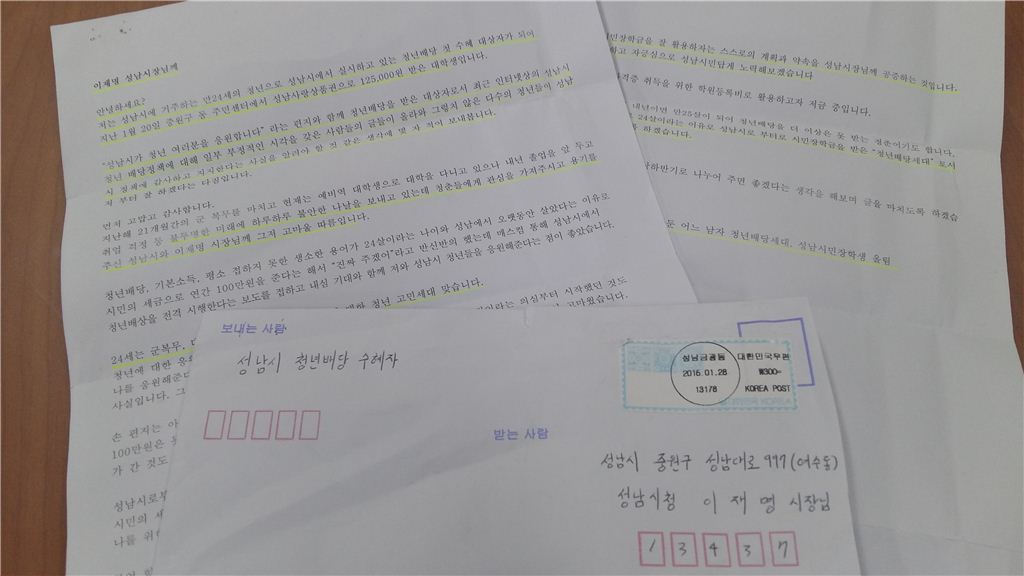 이재명 성남시장님께
안녕하세요?
저는 성남시에 거주하는 만24세의 청년으로 성남시에서 실시하고 있는 청년배당 첫 수혜 대상자가 되어
지난 1월 20일 중원구 동 주민센터에서 성남사랑상품권으로 125,000원 받은 대학생입니다.
"성남시가 청년 여러분을 응원합니다" 라는 편지와 함께 청년배당을 받은 대상자로서 최근 인터넷상의 성남시
청년 배당정책에 대해 일부 부정적인 시각을 갖은 사람들의 글들이 올라와 그렇지 않은 다수의 청년들이 성남
시 정책에 감사하고 지지한다는 사실을 알려야 할 것 같은 생각에 몇 자 적어 보내봅니다.
저 부터 잘 하겠다는 다짐입니다.
먼저 고맙고 감사합니다.
지난해 21개월간의 군 복무를 마치고 현재는 예비역 대학생으로 대학을 다니고 있으나 내년 졸업을 앞 두고
취업 걱정 등 불투명한 미래에 하루하루 불안한 나날을 보내고 있는데 청춘들에게 관심을 가져주시고 용기를
주신 성남시와 이재명 시장님께 그저 고마울 따름입니다.
청년배당, 기본소득, 평소 접하지 못한 생소한 용어가 24살이라는 나이와 성남에서 오랫동안 살았다는 이유로
시민의 세금으로 연간 100만원을 준다는 해서 "진짜 주겠어"라고 반신반의 했는데 매스컴 통해 성남시에서
청년배상을 전격 시행한다는 보도를 접하고 내심 기대와 함께 저와 성남시 청년들을 응원해준다는 점이 좋았습니다.
청년 고민세대 맞습니다.
24세는 군복무,
이라는 의심부터 시작했던 것도
청년에 대한 응
고마웠습니다.
나를 응원해준다
사실입니다. 그
손 편지는 아
100만원은 못
가 간 것도
성남시로부
시민의 세
나를 위
시민장학금을 잘 활용하자는 스스로의 계획과 약속을 성남시장님께 공증하는 것입니다.
하고 자긍심으로 성남시민답게 노력해보겠습니다
격증 취득을 위한 학원등록비로 활용하고자 저금 중입니다.
내년이면 만25살이 되어 청년배당을 더 이상은 못 받는 청춘이기도 합니다.
24살이라는 이유로 성남시로 부터로 시민장학금을 받은 "청년배당세대" 로서
하겠습니다.
하반기로 나누어 주면 좋겠다는 생각을 해보며 글을 마치도록 하겠습
둔 어느 남자 청년배당세대, 성남시민장학생 올림
보내는 사람
성남시 청년배당 수혜자
성남금광동
2016.01.28
13178
대한민국우편
₩300
KOREA POST
받는 사람
성남시 중원구 성남대로 997 (여수동)
성남시청 이재명 시장님
1 3 4 3 7